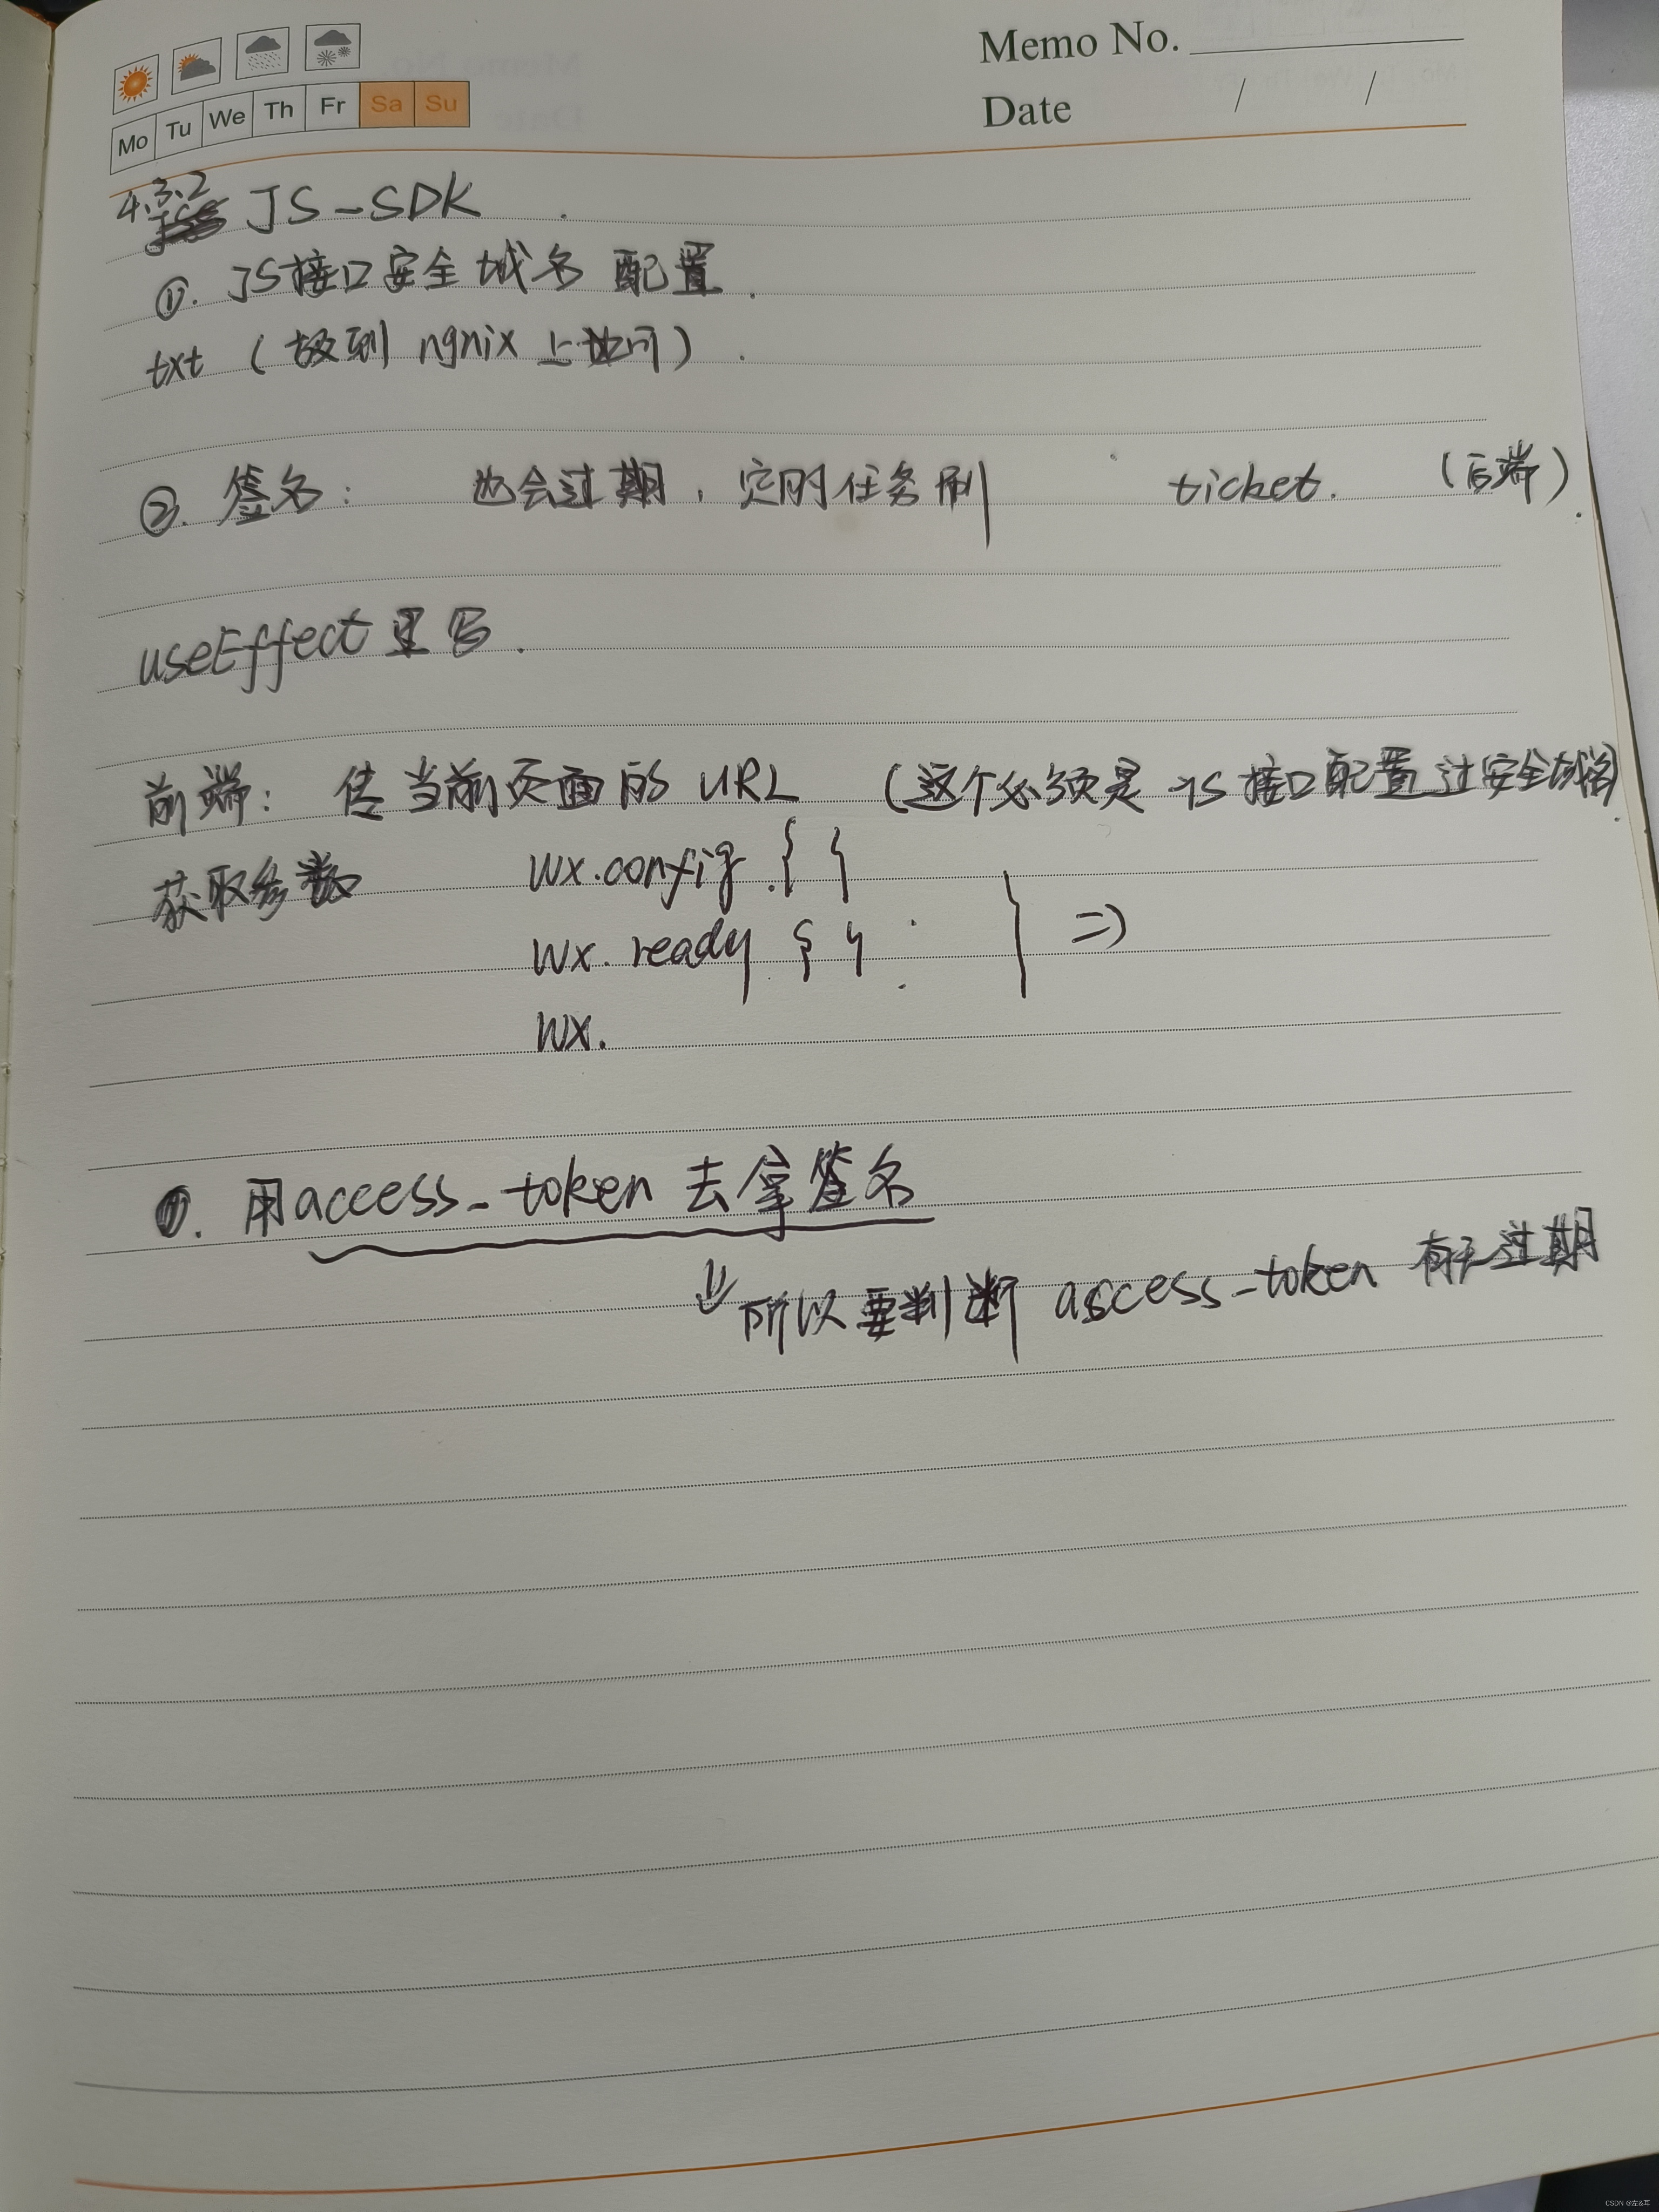 Memo No.
Mo Tu We Th Fr Sa Su
Date / /
4.3.2 JS-SDK
①. JS接口安全域名 配置.
txt (放到 ngnix 上访问).
②. 签名: 也会过期, 定时任务刷 ticket. (后端).
useEffect里写.
前端: 传当前页面的 URL (这个必须是 JS接口配置过安全域名).
获取参数 wx.config {}
wx.ready {} } =>
wx.
①. 用access_token 去拿签名
所以要判断 access-token 有无过期
CSDN @左&耳